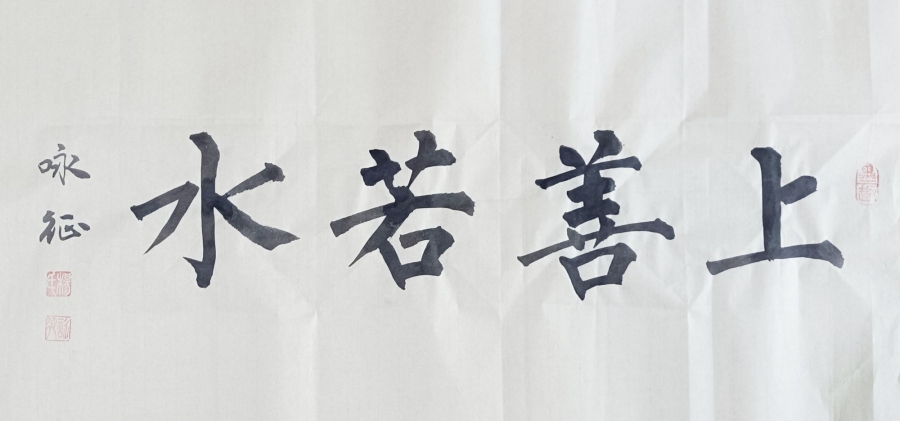 上善若水
咏征